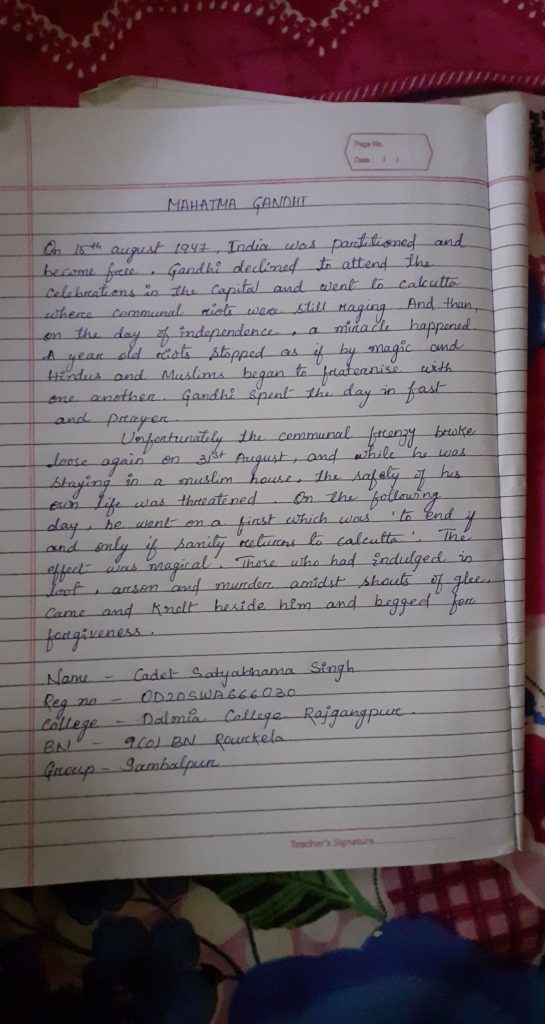 Page No.
Date: / /
MAHATMA GANDHI
On 15th august 1947, India was partitioned and
become free. Gandhi declined to attend the
celebrations in the Capital and went to calcutta
where communal riots were still raging And than,
on the day of independence, a miracle happened.
A year old riots stopped as if by magic and
Hindus and Muslims began to fraternise with
one another. Gandhi spent the day in fast
and prayer
Unfortunately the communal frengy broke
loose again on 31st August, and while he was
staying in a muslim house, the safety of his
own life was threatened. On the following
day, he went on a first which was 'to end if
and only if sanity returns to calcutta'. The
effect was magical. Those who had indulged in
loot, arson and murder amidst shouts of glee,
came and knelt beside him and begged for
forgiveness.
Name - Cadet Satyabhama Singh
Reg no - OD20SWA666030
College - Dalmia College Rajgangpur.
BN - 9(O) BN Rourkela
Group - Sambalpur
Teacher's Signature